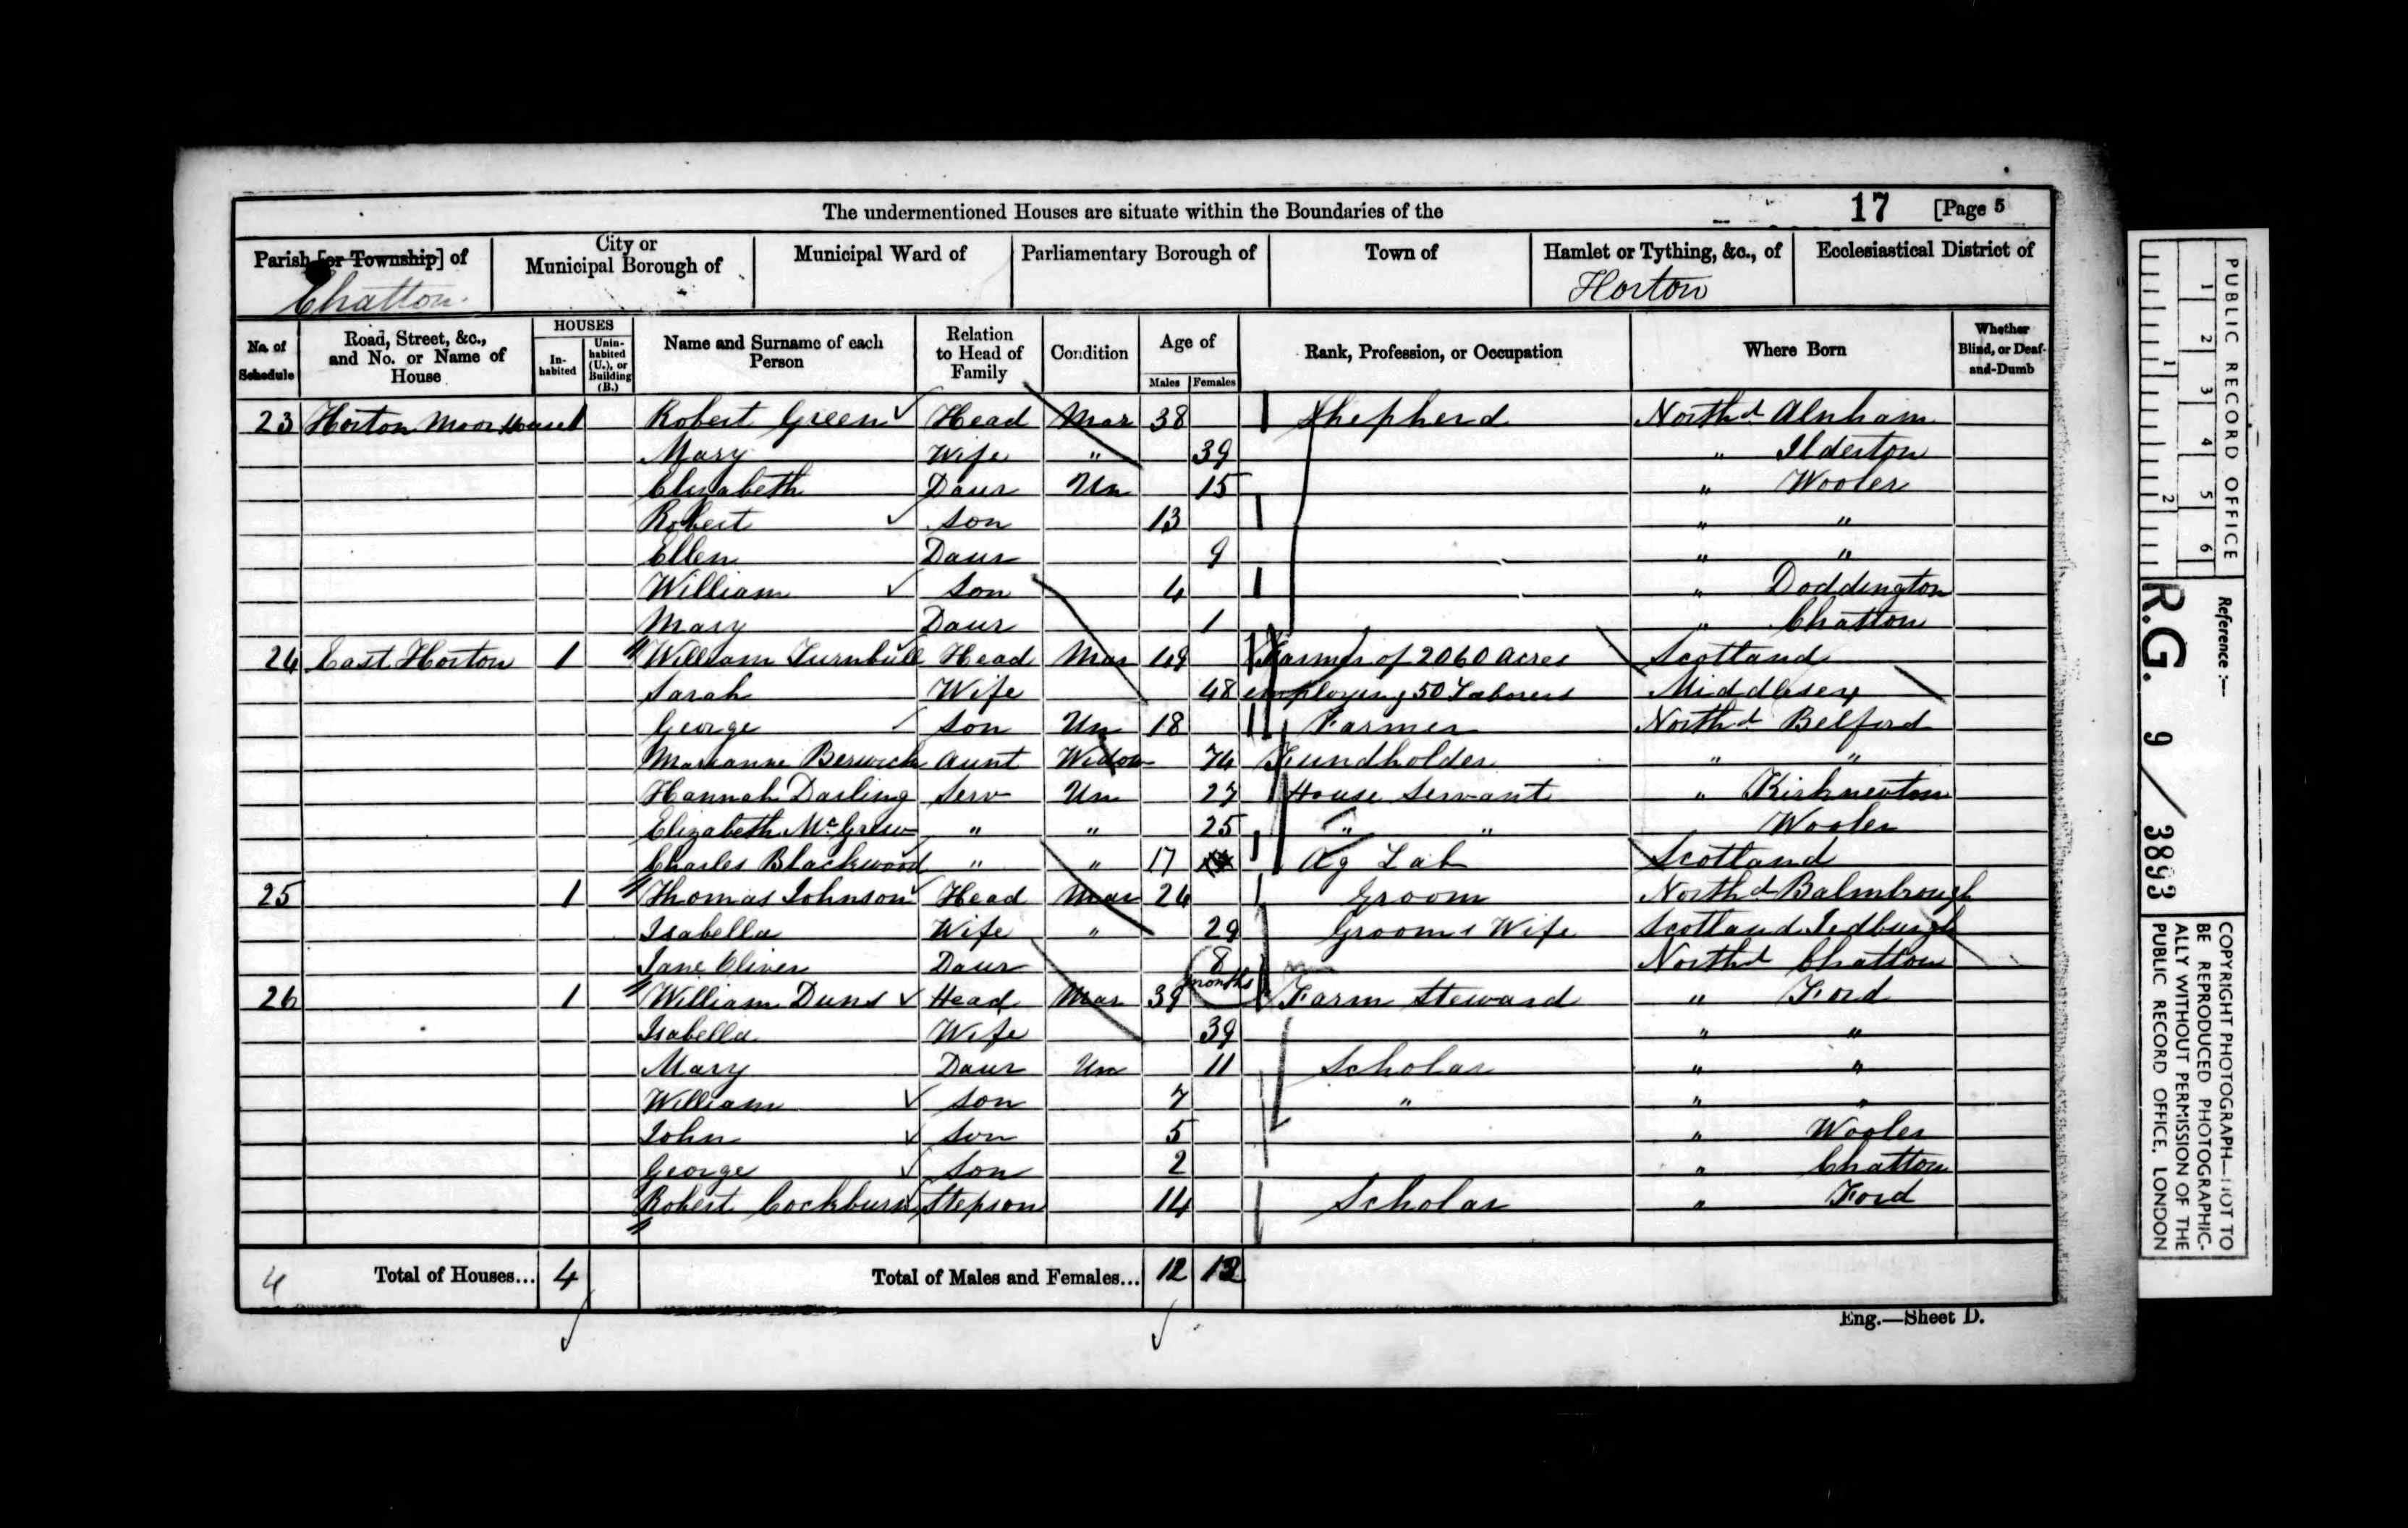 The undermentioned Houses are situate within the Boundaries of the 17 [Page 5
Parish [or Township] of City or Municipal Borough of Municipal Ward of Parliamentary Borough of Town of Hamlet or Tything, &c., of Ecclesiastical District of
Chatton Horton
No. of Schedule Road, Street, &c., and No. or Name of House HOUSES In-habited Unin-habited (U.), or Building (B.) Name and Surname of each Person Relation to Head of Family Condition Age of Males Females Rank, Profession, or Occupation Where Born Whether Blind, or Deaf-and-Dumb
23 Horton Moor House 1 Robert Green Head Mar 38 Shepherd North.d Alnham
Mary Wife " 39 " Ilderton
Elizabeth Daur Un 15 " Wooler
Robert Son 13 " "
Ellen Daur 9 " "
William Son 4 " Doddington
Mary Daur 1 " Chatton
24 East Horton 1 William Turnbull Head Mar 49 Farmer of 2060 Acres Scotland
Sarah Wife 48 employing 50 Laborers Middlesex
George Son Un 18 Farmer North.d Belford
Marianne Berwick Aunt Widow 74 Fundholder " "
Hannah Darling Serv Un 27 House Servant " Kirknewton
Elizabeth Mc Grew " " 25 " " Wooler
Charles Blackwood " " 17 Ag Lab Scotland
25 1 Thomas Johnson Head Mar 24 Groom North.d Balmbrough
Isabella Wife " 29 Grooms Wife Scotland Jedburgh
Jane Oliver Daur 8 months North.d Chatton
26 1 William Duns Head Mar 39 Farm Steward " Ford
Isabella Wife 39 " "
Mary Daur Un 11 Scholar " "
William Son 7 " " "
John Son 5 " Wooler
George Son 2 " Chatton
Robert Cockburn Stepson 14 Scholar " Ford
4 Total of Houses... 4 Total of Males and Females... 12 12
Eng.—Sheet D.
PUBLIC RECORD OFFICE
1 2 3 4 5 6
1 2
Reference:—
R.G. 9 / 3893
COPYRIGHT PHOTOGRAPH—NOT TO
BE REPRODUCED PHOTOGRAPHIC-
ALLY WITHOUT PERMISSION OF THE
PUBLIC RECORD OFFICE, LONDON